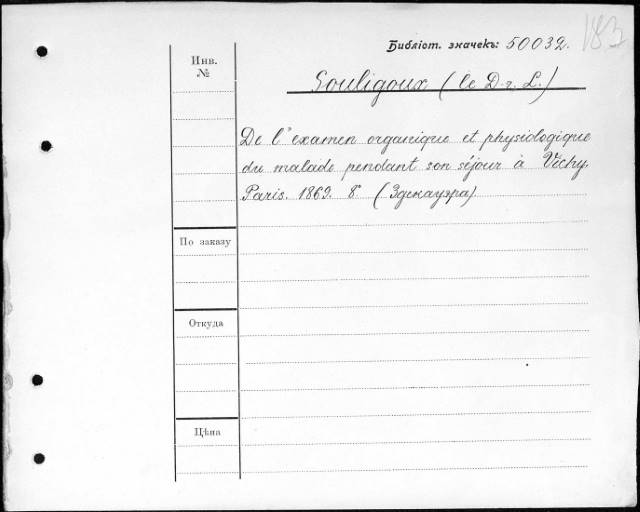 183
Библіот. значекъ: 50032.
Инв.
№
Souligoux (le D-r. L.)
De l'examen organique et physiologique
du malade pendant son séjour à Vichy.
Paris. 1869. 8° (Здекауэра)
По заказу
Откуда
Цѣна